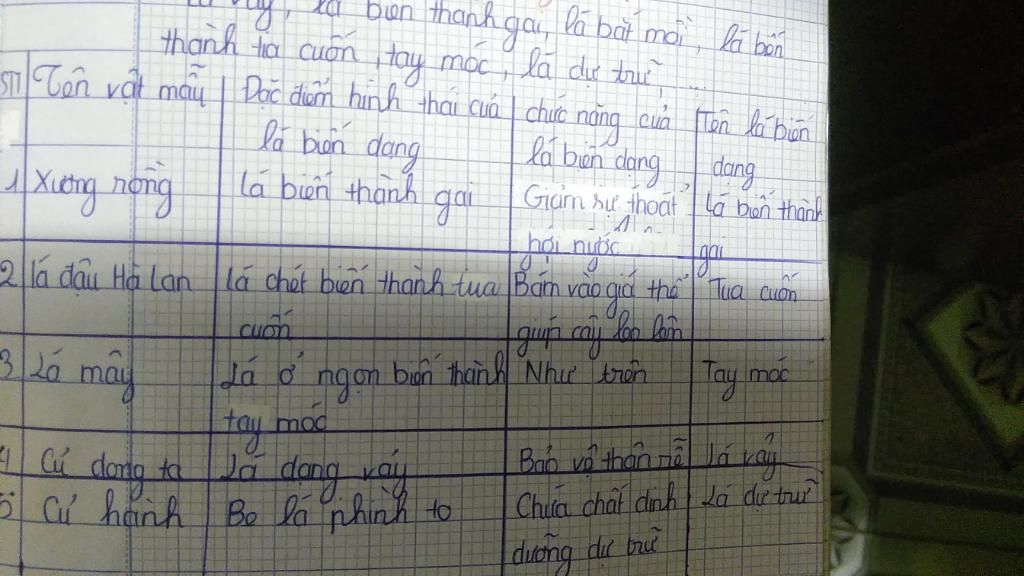 vảy, lá biến thành gai, lá bắt mồi, lá biến
thành tua cuốn, tay móc, lá dự trữ, ...
STT Tên vật mẫu Đặc điểm hình thái của chức năng của Tên lá biến
lá biến dạng lá biến dạng dạng
1 Xương rồng lá biến thành gai Giảm sự thoát Lá biến thành
hơi nước gai
2 lá đậu Hà Lan lá chét biến thành tua Bám vào giá thể Tua cuốn
cuốn giúp cây leo lên
3 Lá mây Lá ở ngọn biến thành Như trên Tay móc
tay móc
4 Củ dong ta Lá dạng vảy Bảo vệ thân rễ Lá vảy
5 Củ hành Bẹ lá phình to Chứa chất dinh Lá dự trữ
dưỡng dự trữ